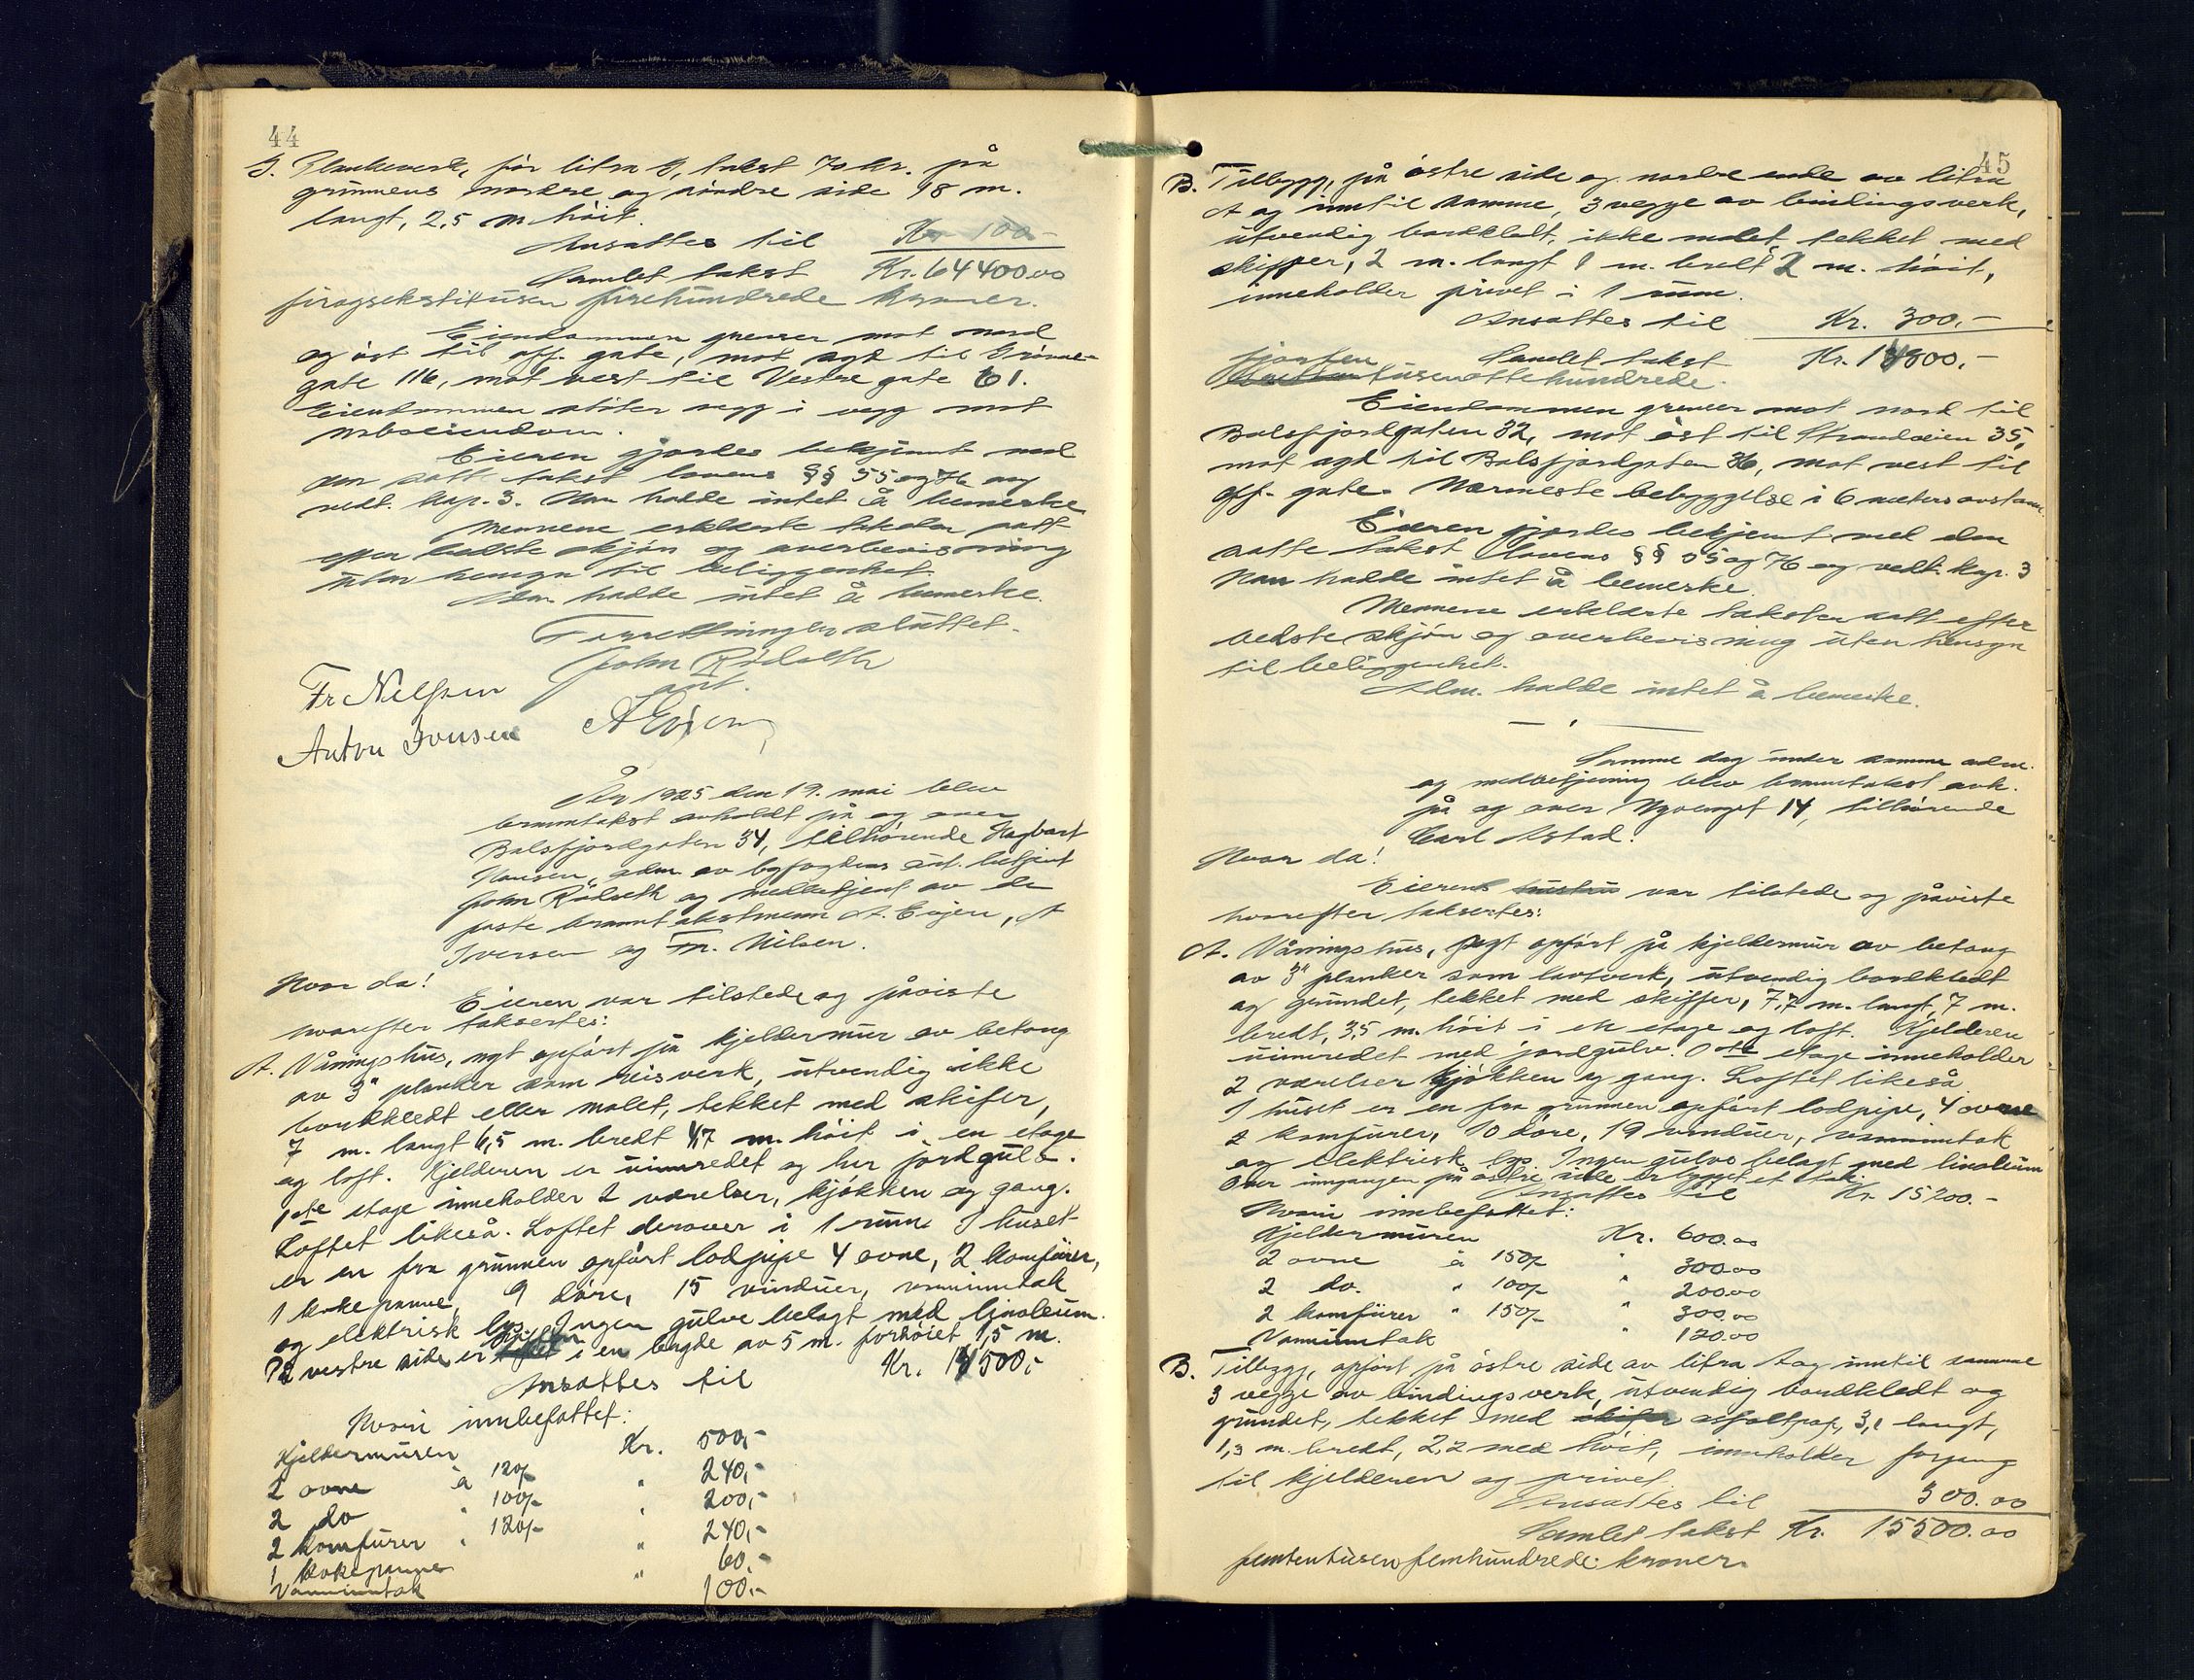 44
J. Plankeverk, før litra J, takst 70 kr. på
grunnens nordre og søndre side 18 m.
langt, 2,5 m høit.
Ansattes til Kr 100.-
Samlet takst Kr. 64400.00
firehundrede kroner.
Eiendommen grenser mot nord
og øst til off. gate, mot syd til Grønne-
gate 116, mot vest til Vestre gate 61.
Eiendommen støter vegg i vegg mot
naboeiendom.
Eieren gjordes bekjennt med
den satte takst lovens §§ 55 og 76 og
vedt. kap. 3. Han hadde intet å bemerke
Mennene erklærte taksten satt
efter bedste skjøn og overbevisning
uten hensyn til beliggenhet.
Adm. hadde intet å bemerke.
Forretningen sluttet.
John Rödseth
aut.
Fr Nilsen
Anton Iversen A Evjen
År 1925 den 19. mai blev
branntakst avholdt på og over
Balsfjordgaten 34, tilhørende Hagbart
Hansen, adm. av byfogdens aut. betjent
John Rödseth og medbetjent av de
faste branntakstmenn A. Evjen, A
Iversen og Fr. Nilsen.
Hvor da!
Eieren var tilstede og påviste
hvorefter taksertes:
A. Våningshus, nyt opført på kjeldermur av betong
av 3" planker som reisverk, utvendig ikke
bordkledt eller malet, tekket med skifer,
7 m. langt 6,5 m. bredt 4,7 m. høit i en etage
og loft. Kjelderen er uinnredet og her jordgulv.
1ste etage inneholder 2 værelser, kjøkken og gang.
Loftet likeså. Loftet derover i 1 rum. I huset
er en fra grunnen opført lodpipe 4 ovne, 2 komfürer,
1 kokepanne, 9 döre, 15 vinduer, vanninntak
og elektrisk lys. Ingen gulve belagt med linoleum.
På vestre side er i en lengde av 5 m. forhøiet 1,5 m.
Ansattes til Kr. 14500.-
Hvori innbefattet:
Kjeldermuren Kr. 500,-
2 ovne à 120/- " 240,-
2 do " 100/- " 200,-
2 komfürer " 120/- " 240,-
1 kokepanne " 60.-
Vanninntak 100.-
45
B. Tilbygg, på østre side og nordre ende av litra
A og inntil samme, 3 vegge av bindingsverk,
utvendig bordkledt, ikke malet, tekket med
skiffer, 2 m. langt 1 m. bredt 2 m. høit,
inneholder privet i 1 rum.
Ansattes til Kr. 300.-
Samlet takst Kr. 14800.-
fjorten tusenottehundrede.
Eiendommen grenser mot nord til
Balsfjordgaten 32, mot øst til Strandveien 35,
mot syd til Balsfjordgaten 36, mot vest til
off. gate. Nærmeste bebyggelse i 6 meters avstann.
Eieren gjordes bekjent med den
satte takst lovens §§ 55 og 76 og vedt. kap. 3
Han hadde intet å bemerke.
Mennene erklærte taksten satt efter
bedste skjøn og overbevisning uten hensyn
til beliggenhet.
Adm. hadde intet å bemerke.
Samme dag under samme adm.
og medbetjening blev branntakst avh.
på og over Nyvenget 14, tilhørende
Carl Astad.
Hvor da!
Eierens hustru var tilstede og påviste
hvorefter taksertes:
A. Våningshus, nyt opført på kjeldermur av betong
av 3" planker som lavtverk, utvendig bordkledt
og grundet, tekket med skiffer, 7,7 m. langt, 7 m.
bredt, 3,5 m. høit i en etage og loft. Kjelderen
uinnredet med jordgulv. 1ste etage inneholder
2 værelser kjøkken og gang. Loftet likeså
I huset er en fra grunnen opført lodpipe, 4 ovne
2 komfürer, 10 döre, 19 vinduer, vanninntak
og elektrisk lys. Ingen gulve belagt med linoleum
Over inngangen på østre side er bygget et tak.
Ansattes til Kr. 15200.-
Hvori innbefattet:
Kjeldermuren Kr. 600.00
2 ovne à 150/- " 300.00
2 do. " 100/- " 200.00
2 komfürer " 150/- " 300.00
Vanninntak " 120.00
B. Tilbygg, opført på østre side av litra A og inntil samme
3 vegge av bindingsverk, utvendig bordkledt og
grundet, tekket med skifer asfaltpap, 3,1 langt,
1,3 m. bredt, 2,2 med høit, inneholder forgang
til kjelderen og privet.
Ansattes til 300.00
Samlet takst Kr. 15500.00
femtentusenfemhundrede kroner.